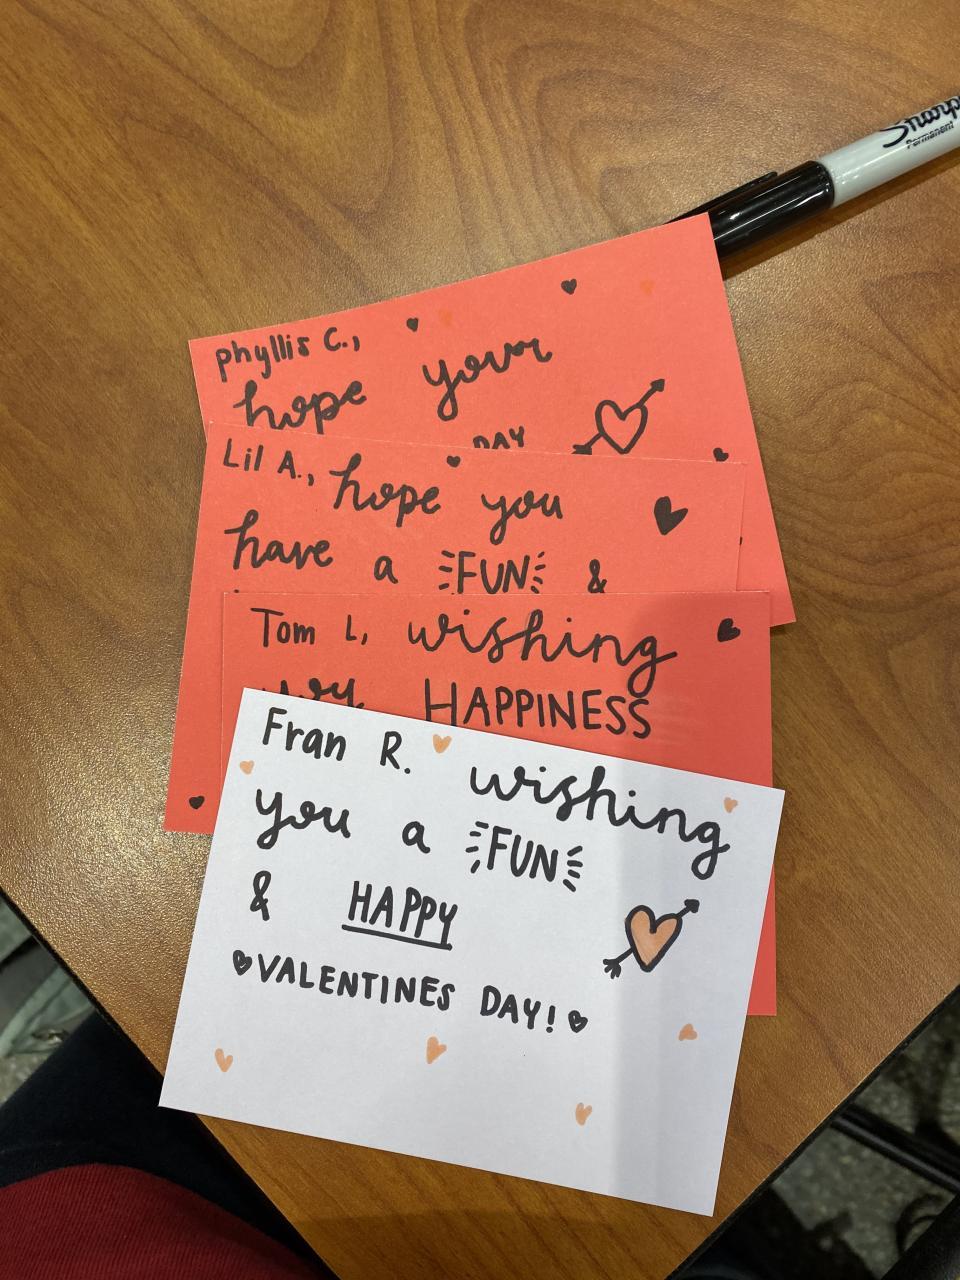 Sharp
Permanent
phyllis C.,
hope your
DAY
Lil A., hope you
have a FUN &
Tom L, wishing
HAPPINESS
Fran R. wishing
you a FUN
& HAPPY
VALENTINES DAY!